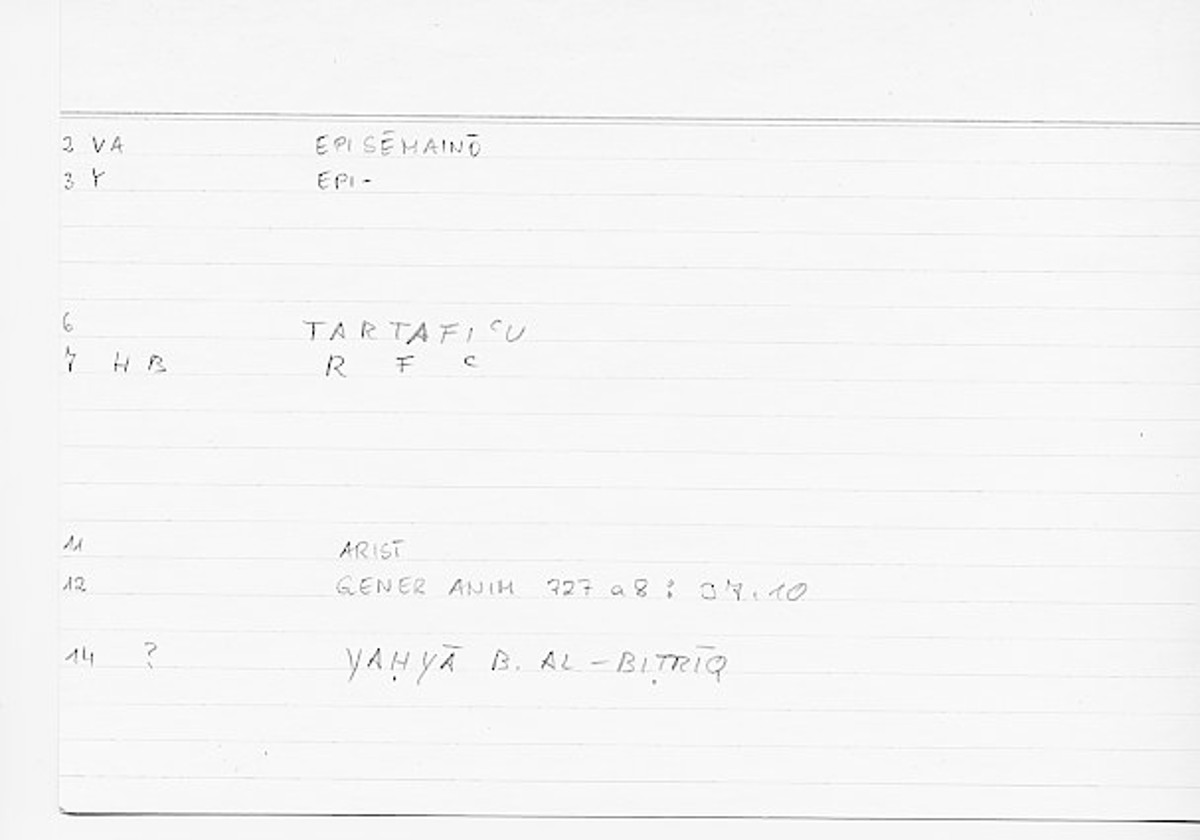 2 VA EPISĒMAINŌ
3 Y EPI-
6 TARTAFIʿU
7 HB R F ʿ
11 ARIST
12 GENER ANIM 727 a8 : 97.10
14 ? YAḤYĀ B. AL-BIṬRĪQ